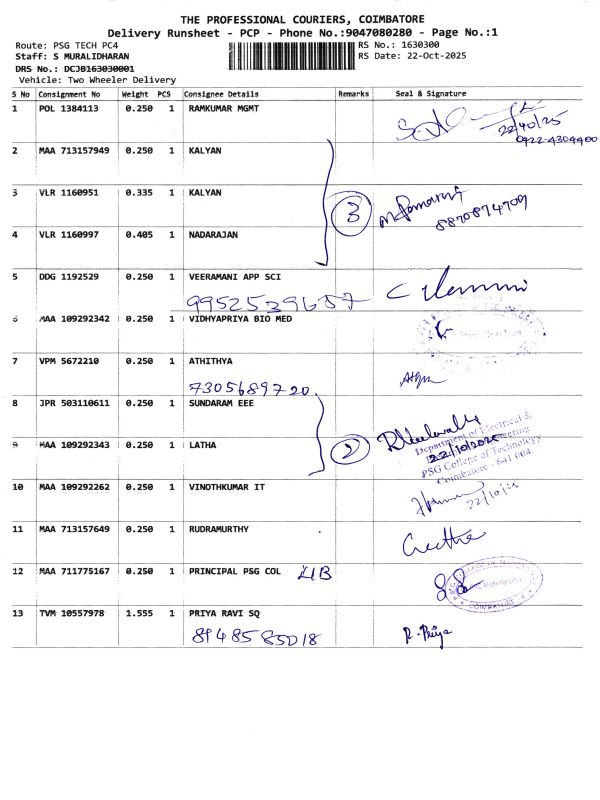 THE PROFESSIONAL COURIERS, COIMBATORE
Delivery Runsheet - PCP - Phone No.:9047080280 - Page No.:1
Route: PSG TECH PC4 RS No.: 1630300
Staff: S MURALIDHARAN RS Date: 22-Oct-2025
DRS No.: DCJB163030001
Vehicle: Two Wheeler Delivery
S No Consignment No Weight PCS Consignee Details Remarks Seal & Signature
1 POL 1384113 0.250 1 RAMKUMAR MGMT
0422-4304400
2 MAA 713157949 0.250 1 KALYAN
3 VLR 1160951 0.335 1 KALYAN 3
8870874709
4 VLR 1160997 0.405 1 NADARAJAN
5 DDG 1192529 0.250 1 VEERAMANI APP SCI
9952539687
6 MAA 109292342 0.250 1 VIDHYAPRIYA BIO MED
7 VPM 5672210 0.250 1 ATHITHYA
7305689720
8 JPR 503110611 0.250 1 SUNDARAM EEE
9 MAA 109292343 0.250 1 LATHA 2
Department of Electrical &
22/10/2025 Engineering
PSG College of Technology
Coimbatore - 641 004
10 MAA 109292262 0.250 1 VINOTHKUMAR IT
11 MAA 713157649 0.250 1 RUDRAMURTHY Geetha
12 MAA 711775167 0.250 1 PRINCIPAL PSG COL LIB
COIMBATORE
13 TVM 10557978 1.555 1 PRIYA RAVI SQ
8948585018 R. Priya